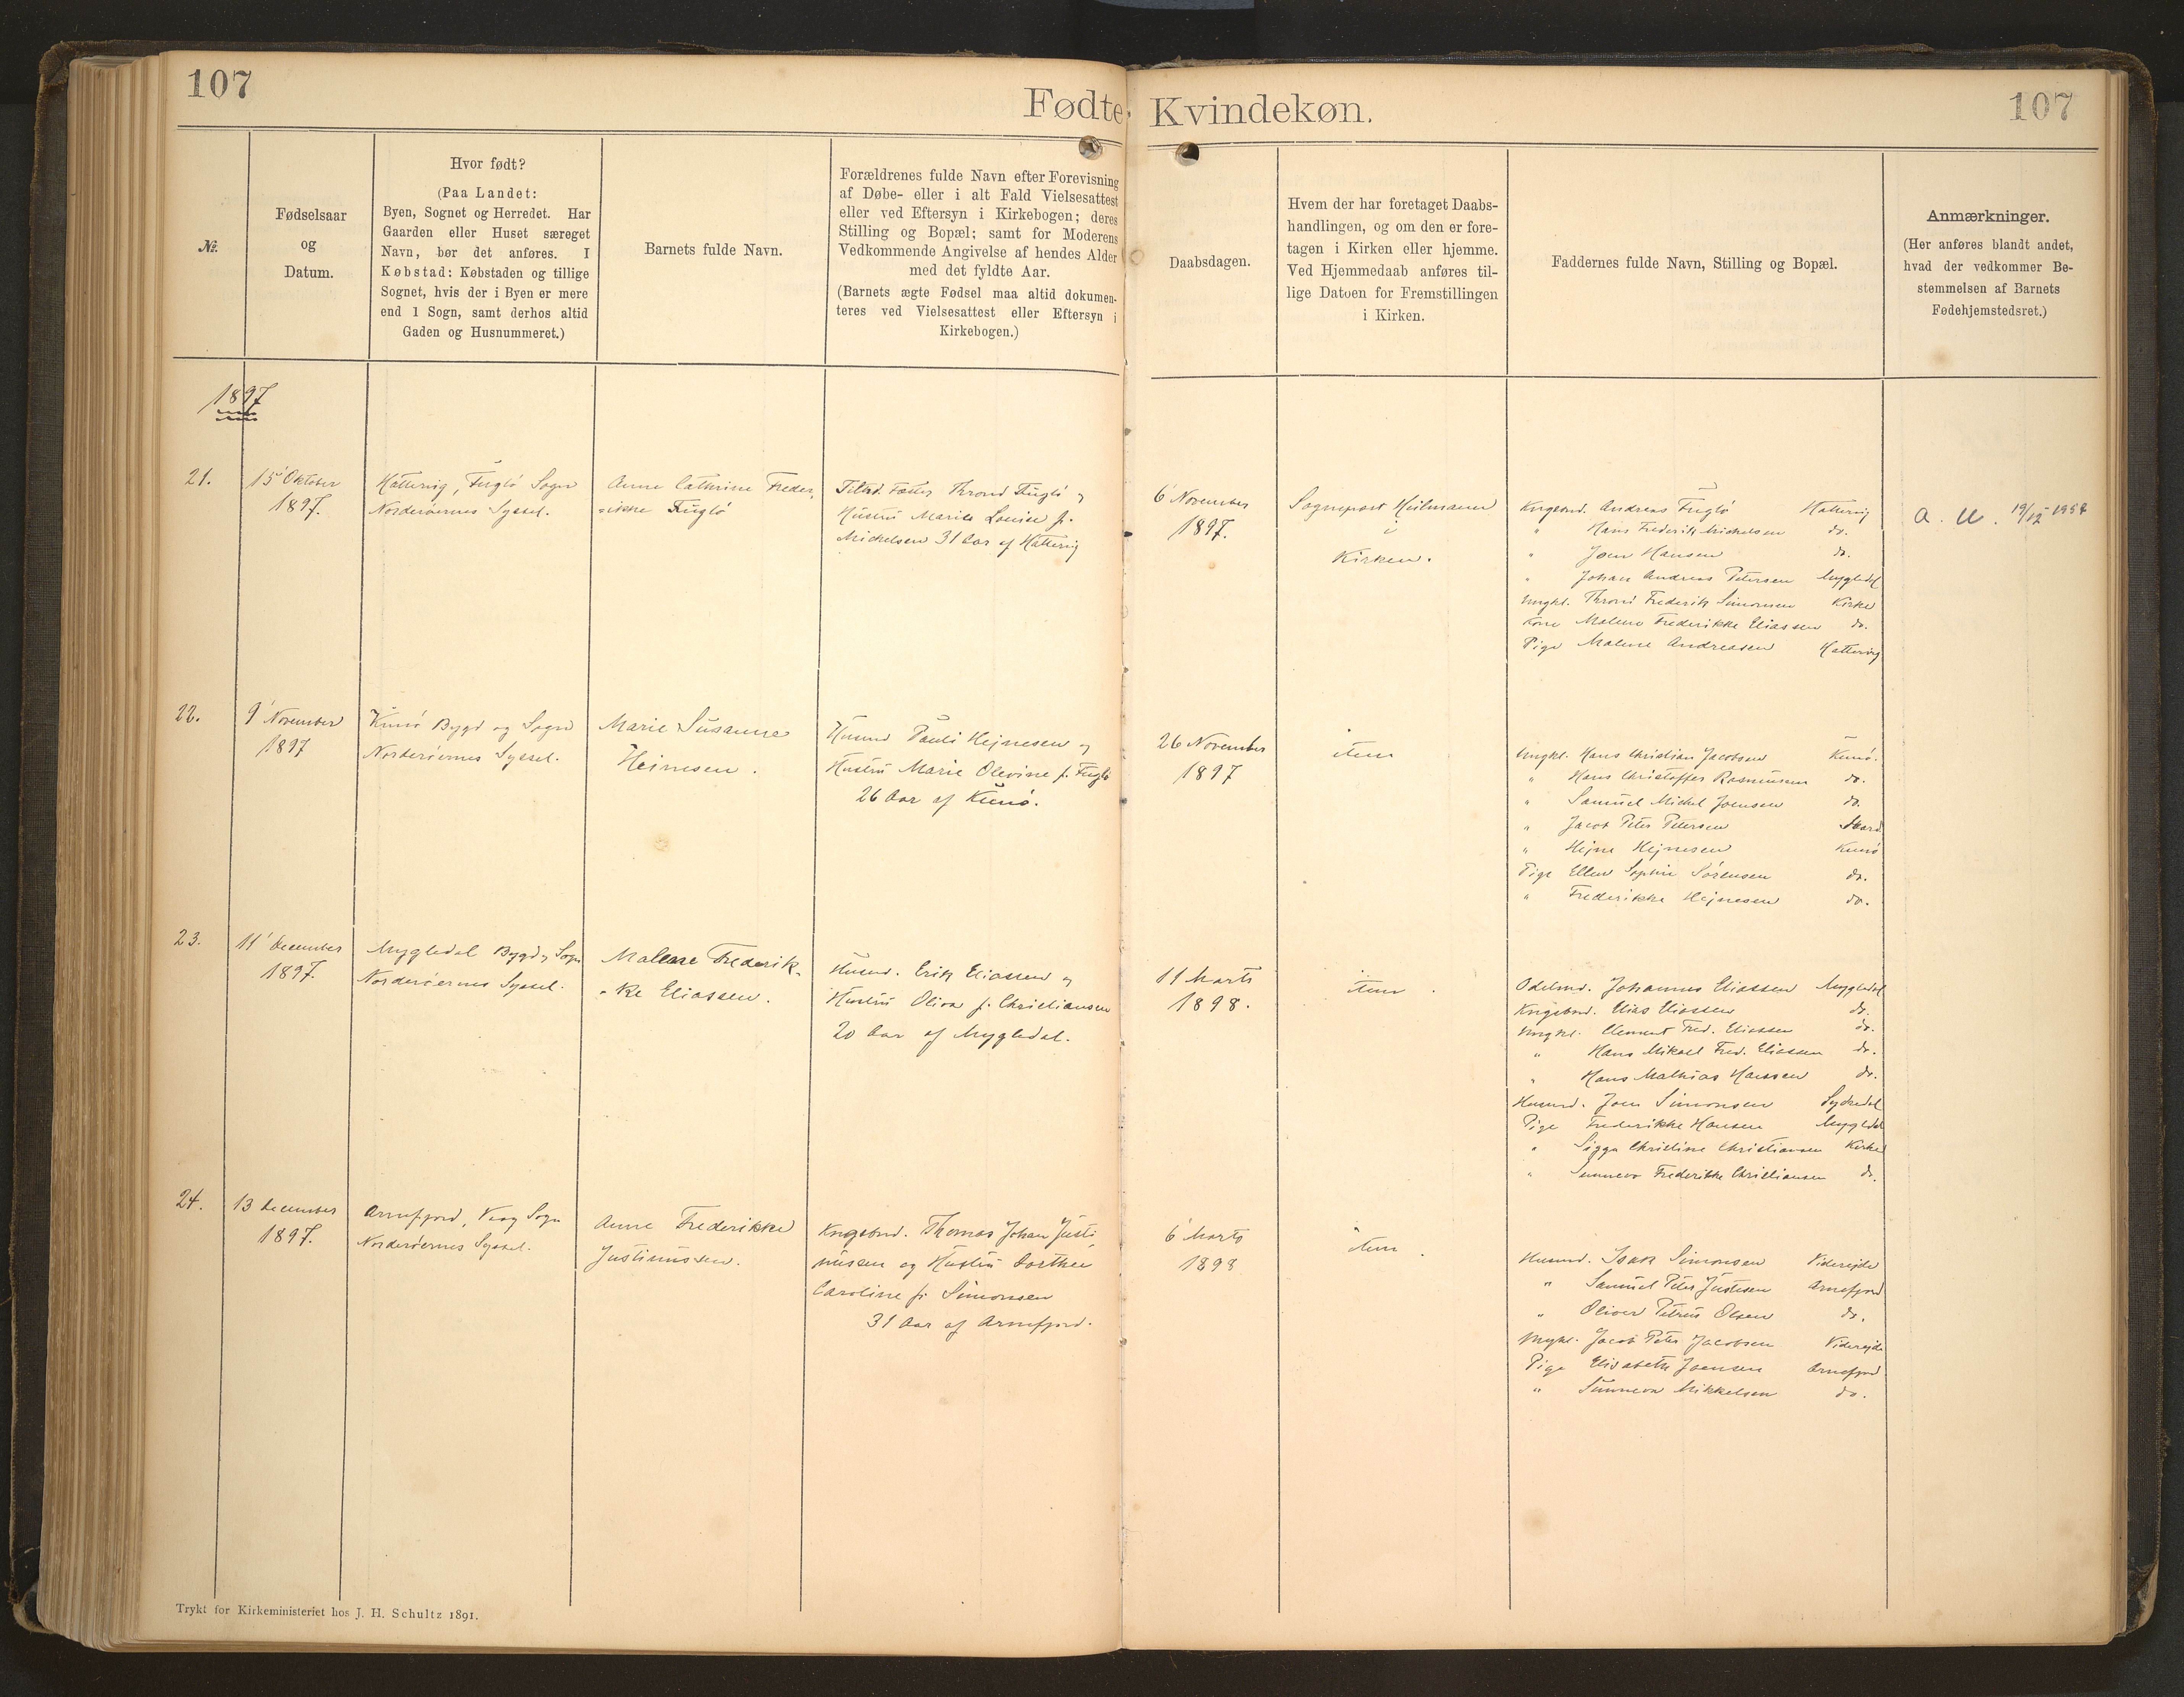 107
Fødte, Kvindekøn.
107
№.
Fødselsaar
og
Datum.
Hvor født?
(Paa Landet:
Byen, Sognet og Herredet. Har
Gaarden eller Huset særeget
Navn, bør det anføres. I
Købstad: Købstaden og tillige
Sognet, hvis der i Byen er mere
end 1 Sogn, samt derhos altid
Gaden og Husnummeret.)
Barnets fulde Navn.
Forældrenes fulde Navn efter Forevisning
af Døbe- eller i alt Fald Vielsesattest
eller ved Eftersyn i Kirkebogen; deres
Stilling og Bopæl; samt for Moderens
Vedkommende Angivelse af hendes Alder
med det fyldte Aar.
(Barnets ægte Fødsel maa altid dokumen-
teres ved Vielsesattest eller Eftersyn i
Kirkebogen.)
Daabsdagen.
Hvem der har foretaget Daabs-
handlingen, og om den er fore-
tagen i Kirken eller hjemme.
Ved Hjemmedaab anføres til-
lige Datoen for Fremstillingen
i Kirken.
Faddernes fulde Navn, Stilling og Bopæl.
Anmærkninger.
(Her anføres blandt andet,
hvad der vedkommer Be-
stemmelsen af Barnets
Fødehjemstedsret.)
1897
21.
15' Oktober
1897.
Hattervig, Fuglö Sogn
Norderöernes Syssel.
Anne Cathrine Freder-
-ikke Fuglö
Thrond Fuglö og
Hustru Maria Louise f.
Mickelsen 31 Aar af Hattervig
6' November
1897.
Sognepræst Heilmann
i
Kirken.
Kngsbnd. Andreas Fuglö Hattervig
" Hans Frederik Mickelsen do.
" Joen Hansen do.
" Johan Andreas Petersen Mygledal
Ungkl. Thrond Frederik Simonsen Kirke
Kone Malene Frederikke Eliassen do.
Pige Malene Andreasen Hattervig
A. U. 19/12 1954
22.
9' November
1897
Kunö Bygd og Sogn
Norderöernes Syssel.
Marie Susanne
Heinesen.
Husmd Pauli Hejnesen og
Hustru Marie Olevine f. Fuglö
26 Aar af Kunö.
26 November
1897
item
Ungkl. Hans Christian Jacobsen Kunö.
" Hans Christoffer Rasmussen do.
" Samuel Michel Joensen do.
" Jacob Peter Petersen Skard
" Hejne Hejnesen Kunö
Pige Ellen Sophie Sörensen do.
" Frederikke Hejnesen do.
23.
11' December
1897.
Mygledal Bygd og Sogn
Norderöernes Syssel.
Malene Frederik-
-ke Eliassen.
Husmd. Erik Eliassen og
Hustru Oliva f. Christiansen
20 Aar af Mygledal.
11 Marts
1898.
item.
Odelsmd. Johannes Eliassen Mygledal
Kngsbnd. Elias Eliassen do.
Ungkl. Clement Fred. Eliassen do.
" Hans Mikael Fred. Eliassen do.
" Hans Mathias Hansen do.
Husmd. Joen Simonsen Sydredal
Pige Frederikke Hansen Mygledal
" Sigga Christine Christiansen Kirke
" Sunneva Frederikke Christiansen do.
24.
13 December
1897.
Arnefjord, Vaag Sogn
Norderöernes Syssel.
Anne Frederikke
Justinussen.
Kngsbnd. Thomas Johan Justi-
nussen og Hustru Dorthea
Caroline f. Simonsen
31 Aar af Arnefjord.
6' Marts
1898
item.
Husmd. Isak Simonsen Videreide
" Samuel Peter Justesen Arnefjord
" Oliver Petrus Olsen do.
Ungkl. Jacob Peter Jacobsen Videreide
Pige Elisabeth Joensen Arnefjord
" Sunneva Mikkelsen do.
Trykt for Kirkeministeriet hos J. H. Schultz 1891.